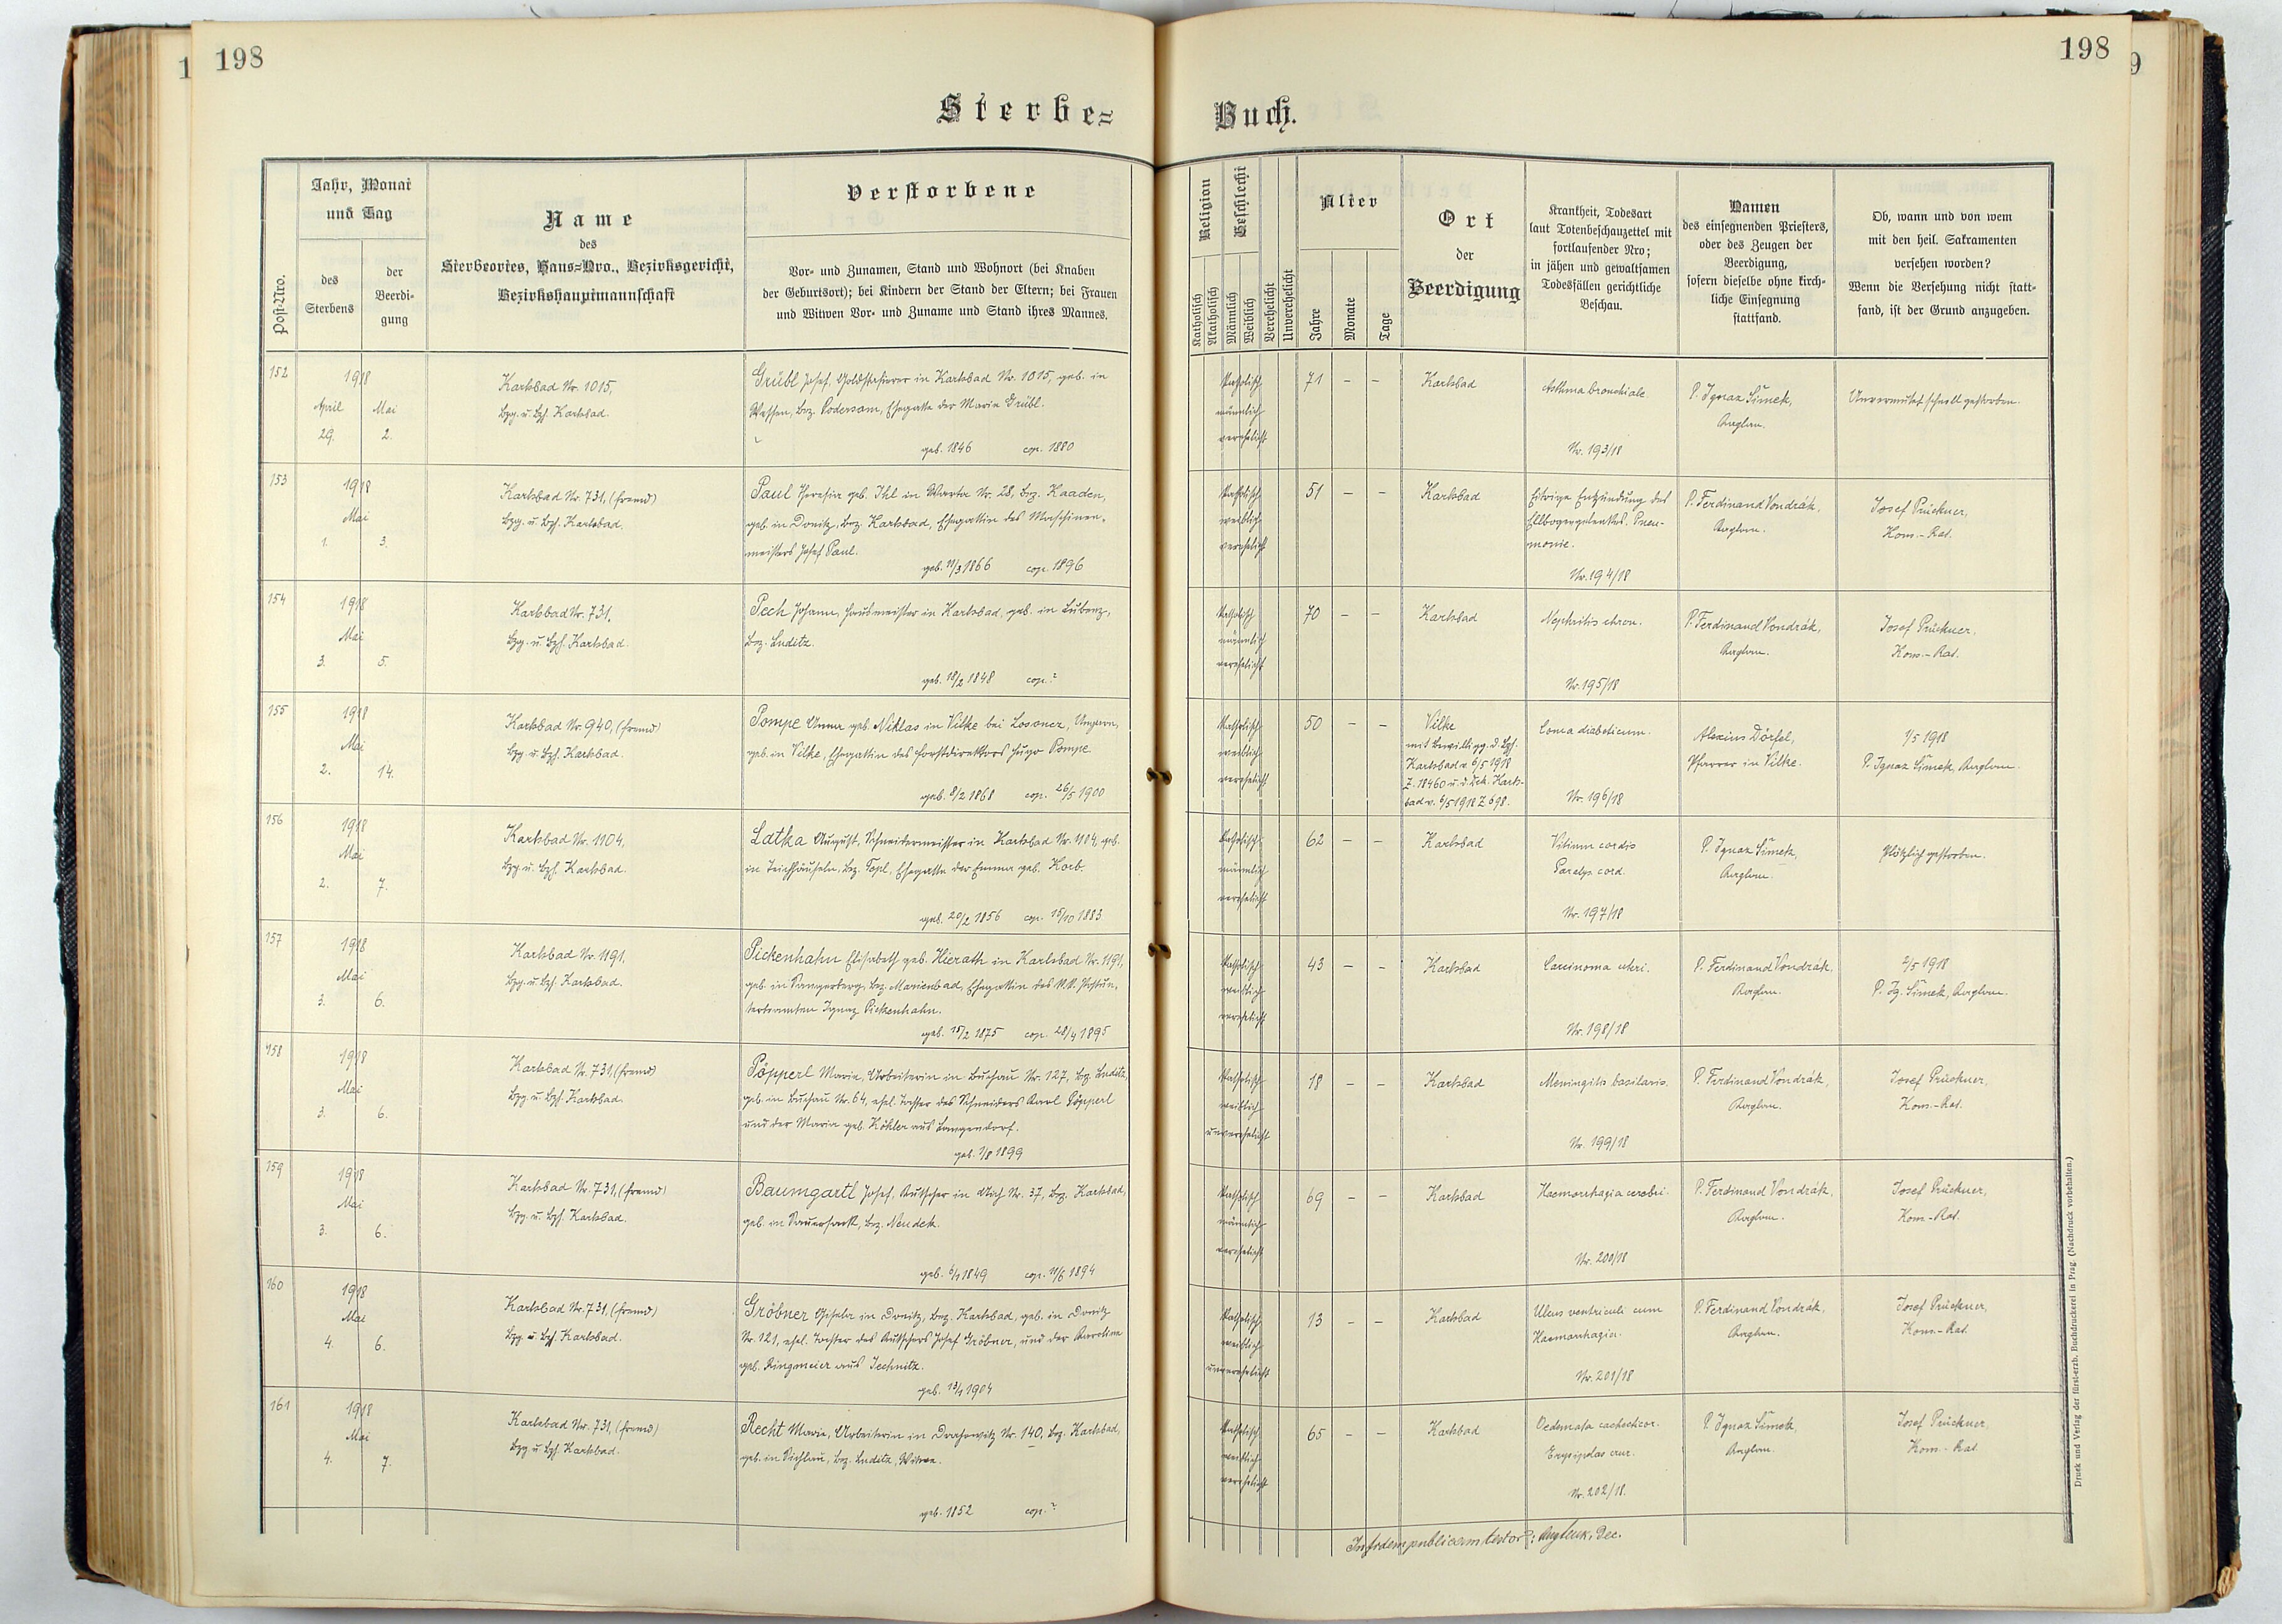 198
198
Sterbe=
Buch.
Post-Nro.
Jahr, Monat
und Tag
des
Sterbens
der
Beerdi-
gung
Name
des
Sterbeortes, Haus=Nro., Bezirksgericht,
Bezirkshauptmannschaft
Verstorbene
Vor- und Zunamen, Stand und Wohnort (bei Knaben
der Geburtsort); bei Kindern der Stand der Eltern; bei Frauen
und Witwen Vor- und Zuname und Stand ihres Mannes.
Religion
Katholisch
Akatholisch
Geschlecht
Männlich
Weiblich
Verehelicht
Unverehelicht
Alter
Jahre
Monate
Tage
Ort
der
Beerdigung
Krankheit, Todesart
laut Totenbeschauzettel mit
fortlaufender Nro;
in jähen und gewaltsamen
Todesfällen gerichtliche
Beschau.
Namen
des einsegnenden Priesters,
oder des Zeugen der
Beerdigung,
sofern dieselbe ohne kirch-
liche Einsegnung
stattfand.
Ob, wann und von wem
mit den heil. Sakramenten
versehen worden?
Wenn die Versehung nicht statt-
fand, ist der Grund anzugeben.
152
1918
April Mai
29. 2.
Karlsbad Nr. 1015,
Bzg. u. Bzh. Karlsbad.
Grübl Josef, in Karlsbad Nr. 1015, geb. in
Bez. Podersam, Ehegatte der Maria Grübl.
geb. 1846 cop. 1880
katholisch
männlich
verehelicht
71 – –
Karlsbad
Asthma bronchiale.
Nr. 193/18
P. Ignaz Šimek,
Kaplan.
Unvermutet schnell gestorben.
153
1918
Mai
1. 3.
Karlsbad Nr. 731, (fremd)
Bzg. u. Bzh. Karlsbad.
Paul Theresia geb. Ihl in Warta Nr. 28, Bez. Kaaden,
geb. in Donitz, Bez. Karlsbad, Ehegattin des Maschinen-
meisters Josef Paul.
geb. 11/3 1866 cop. 1896
katholisch
weiblich
verehelicht
51 – –
Karlsbad
Eitrige Entzündung des
Ellbogengelenkes. Pneu-
monie.
Nr. 194/18
P. Ferdinand Vondrák,
Kaplan.
Josef Prückner,
Kom.-Rat.
154
1918
Mai
3. 5.
Karlsbad Nr. 731.
Bzg. u. Bzh. Karlsbad.
Pech Johann, Hausmeister in Karlsbad, geb. in Lubenz,
Bez. Luditz.
geb. 18/2 1848 cop. ?
katholisch
männlich
verehelicht
70 – –
Karlsbad
Nephritis chron.
Nr. 195/18
P. Ferdinand Vondrák,
Kaplan.
Josef Prückner,
Kom.-Rat.
155
1918
Mai
2. 14.
Karlsbad Nr. 940, (fremd)
Bzg. u. Bzh. Karlsbad.
Pompe Anna geb. Niklas in Vilke bei Losoncz, Ungarn,
geb. in Vilke, Ehegattin des Forstdirektors Hugo Pompe
geb. 8/2 1868 cop. 26/5 1900
katholisch
weiblich
verehelicht
50 – –
Vilke
mit Bewilligg. d. Bzh.
Karlsbad v. 6/5 1918
Z. 18460 u. d. Dek. Karls-
bad v. 6/5 1918 Z 698.
Coma diabeticum.
Nr. 196/18
Alexius Dörfel,
Pfarrer in Vilke.
1/5 1918
P. Ignaz Šimek, Kaplan.
156
1918
Mai
2. 7.
Karlsbad Nr. 1104,
Bzg. u. Bzh. Karlsbad.
Latka August, Schneidermeister in Karlsbad Nr. 1104, geb.
in Teichhäuseln, Bez. Tepl, Ehegatte der Emma geb. Korb.
geb. 20/2 1856 cop. 15/10 1883
katholisch
männlich
verehelicht
62 – –
Karlsbad
Vitium cordis
Paralys. cord.
Nr. 197/18
P. Ignaz Šimek,
Kaplan.
Plötzlich gestorben.
157
1918
Mai
3. 6.
Karlsbad Nr. 1191.
Bzg. u. Bzh. Karlsbad.
Pickenhahn Elisabeth geb. Hierath in Karlsbad Nr. 1191,
geb. in Sangerberg, Bez. Marienbad, Ehegattin des k.k. Postun-
terbeamten Ignaz Pickenhahn.
geb. 15/2 1875 cop. 28/4 1895
katholisch
weiblich
verehelicht
43 – –
Karlsbad
Carcinoma uteri.
Nr. 198/18
P. Ferdinand Vondrák,
Kaplan.
2/5 1918
P. Ig. Šimek, Kaplan.
158
1918
Mai
3. 6.
Karlsbad Nr. 731, (fremd)
Bzg. u. Bzh. Karlsbad.
Pöpperl Maria, Arbeiterin in Buchau Nr. 127, Bez. Luditz,
geb. in Buchau Nr. 64, ehel. Tochter des Schneiders Karl Pöpperl
und der Maria geb. Köhler aus Langendorf.
geb. 1/8 1899
katholisch
weiblich
unverehelicht
18 – –
Karlsbad
Meningitis basilaris.
Nr. 199/18
P. Ferdinand Vondrák,
Kaplan.
Josef Prückner,
Kom.-Rat.
159
1918
Mai
3. 6.
Karlsbad Nr. 731, (fremd)
Bzg. u. Bzh. Karlsbad.
Baumgartl Josef, Kutscher in Aich Nr. 37, Bez. Karlsbad,
geb. in Sauersack, Bez. Neudek.
geb. 6/1 1849 cop. 11/6 1894
katholisch
männlich
verehelicht
69 – –
Karlsbad
Haemorrhagia cerebri.
Nr. 200/18
P. Ferdinand Vondrák,
Kaplan.
Josef Prückner,
Kom.-Rat.
160
1918
Mai
4. 6.
Karlsbad Nr. 731, (fremd)
Bzg. u. Bzh. Karlsbad.
Gröbner Gisela in Donitz, Bez. Karlsbad, geb. in Donitz
Nr. 121, ehel. Tochter des Kutschers Josef Gröbner, und der Karoline
geb. Ringmeier aus Jechnitz.
geb. 13/1 1904
katholisch
weiblich
unverehelicht
13 – –
Karlsbad
Ulcus ventriculi cum
Haemorrhagia.
Nr. 201/18
P. Ferdinand Vondrák,
Kaplan.
Josef Prückner,
Kom.-Rat.
161
1918
Mai
4. 7.
Karlsbad Nr. 731, (fremd)
Bzg. u. Bzh. Karlsbad.
Recht Maria, Arbeiterin in Drahowitz Nr. 140, Bez. Karlsbad,
geb. in Sichlau, Bez. Luditz, Witwe.
geb. 1852 cop. ?
katholisch
weiblich
verehelicht
65 – –
Karlsbad
Oedemata cachecticor.
Erysipelas crur.
Nr. 202/18.
P. Ignaz Šimek,
Kaplan.
Josef Prückner,
Kom.-Rat.
In fidem publicam testor: Dec.
Druck und Verlag der fürst-erzb. Buchdruckerei in Prag. (Nachdruck vorbehalten.)